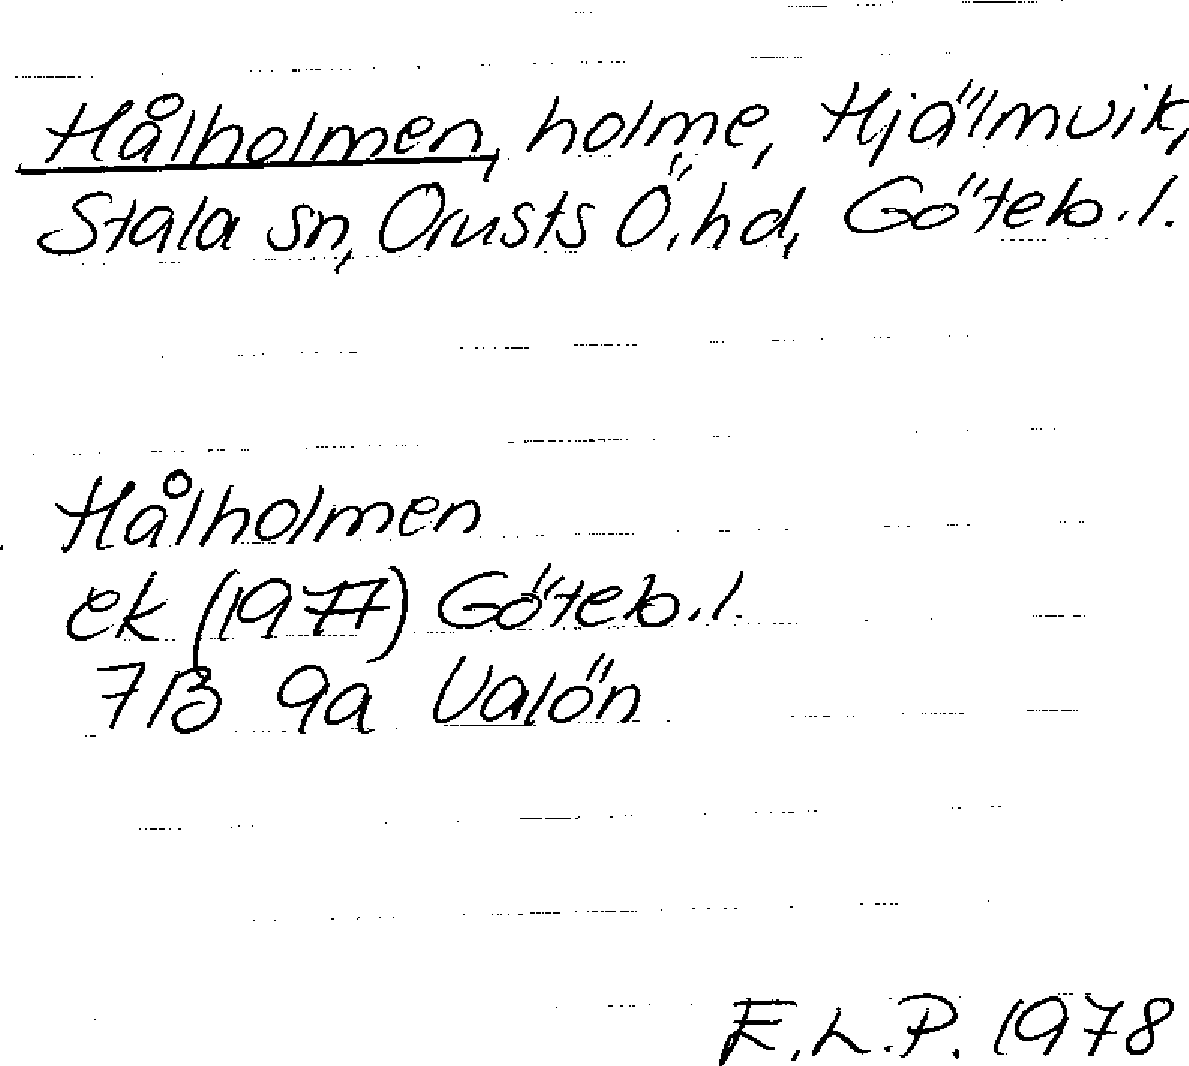 Hålholmen, holme, Hjälmvik,
Stala sn, Orusts Ö. hd, Göteb. l.
Hålholmen
ek (1977) Göteb. l.
7B 9a Valön
E.L.P. 1978